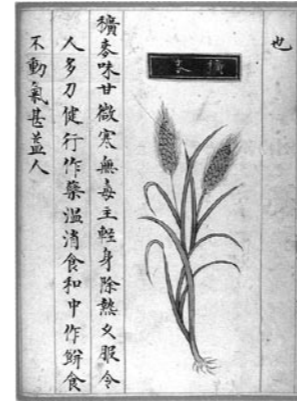 也
穬麥
穬麥味甘微寒無毒主輕身除熱久服令
人多力健行作糵溫消食和中作餅食
不動氣甚益人